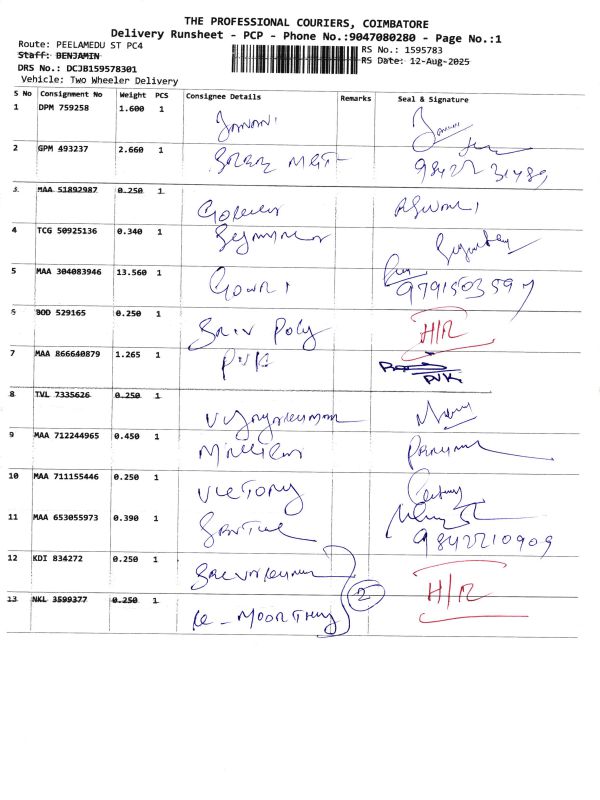 THE PROFESSIONAL COURIERS, COIMBATORE
Delivery Runsheet - PCP - Phone No.:9047080280 - Page No.:1
Route: PEELAMEDU ST PC4
RS No.: 1595783
Staff: BENJAMIN
RS Date: 12-Aug-2025
DRS No.: DCJB159578301
Vehicle: Two Wheeler Delivery
S No Consignment No Weight PCS Consignee Details Remarks Seal & Signature
1 DPM 759258 1.600 1
2 GPM 493237 2.660 1
98422 31489
3 MAA 51892987 0.250 1
ASWANI
4 TCG 50925136 0.340 1
5 MAA 304083946 13.560 1 GOWRI
9791503597
6 BOD 529165 0.250 1 Poly H/R
7 MAA 866640879 1.265 1 PVK PVK
8 TVL 7335626 0.250 1 Vijayakumar Many
9 MAA 712244965 0.450 1
10 MAA 711155446 0.250 1 VICTORY
11 MAA 653055973 0.390 1
9842210909
12 KDI 834272 0.250 1 H/R
2
13 NKL 3599377 0.250 1 MOORTHY